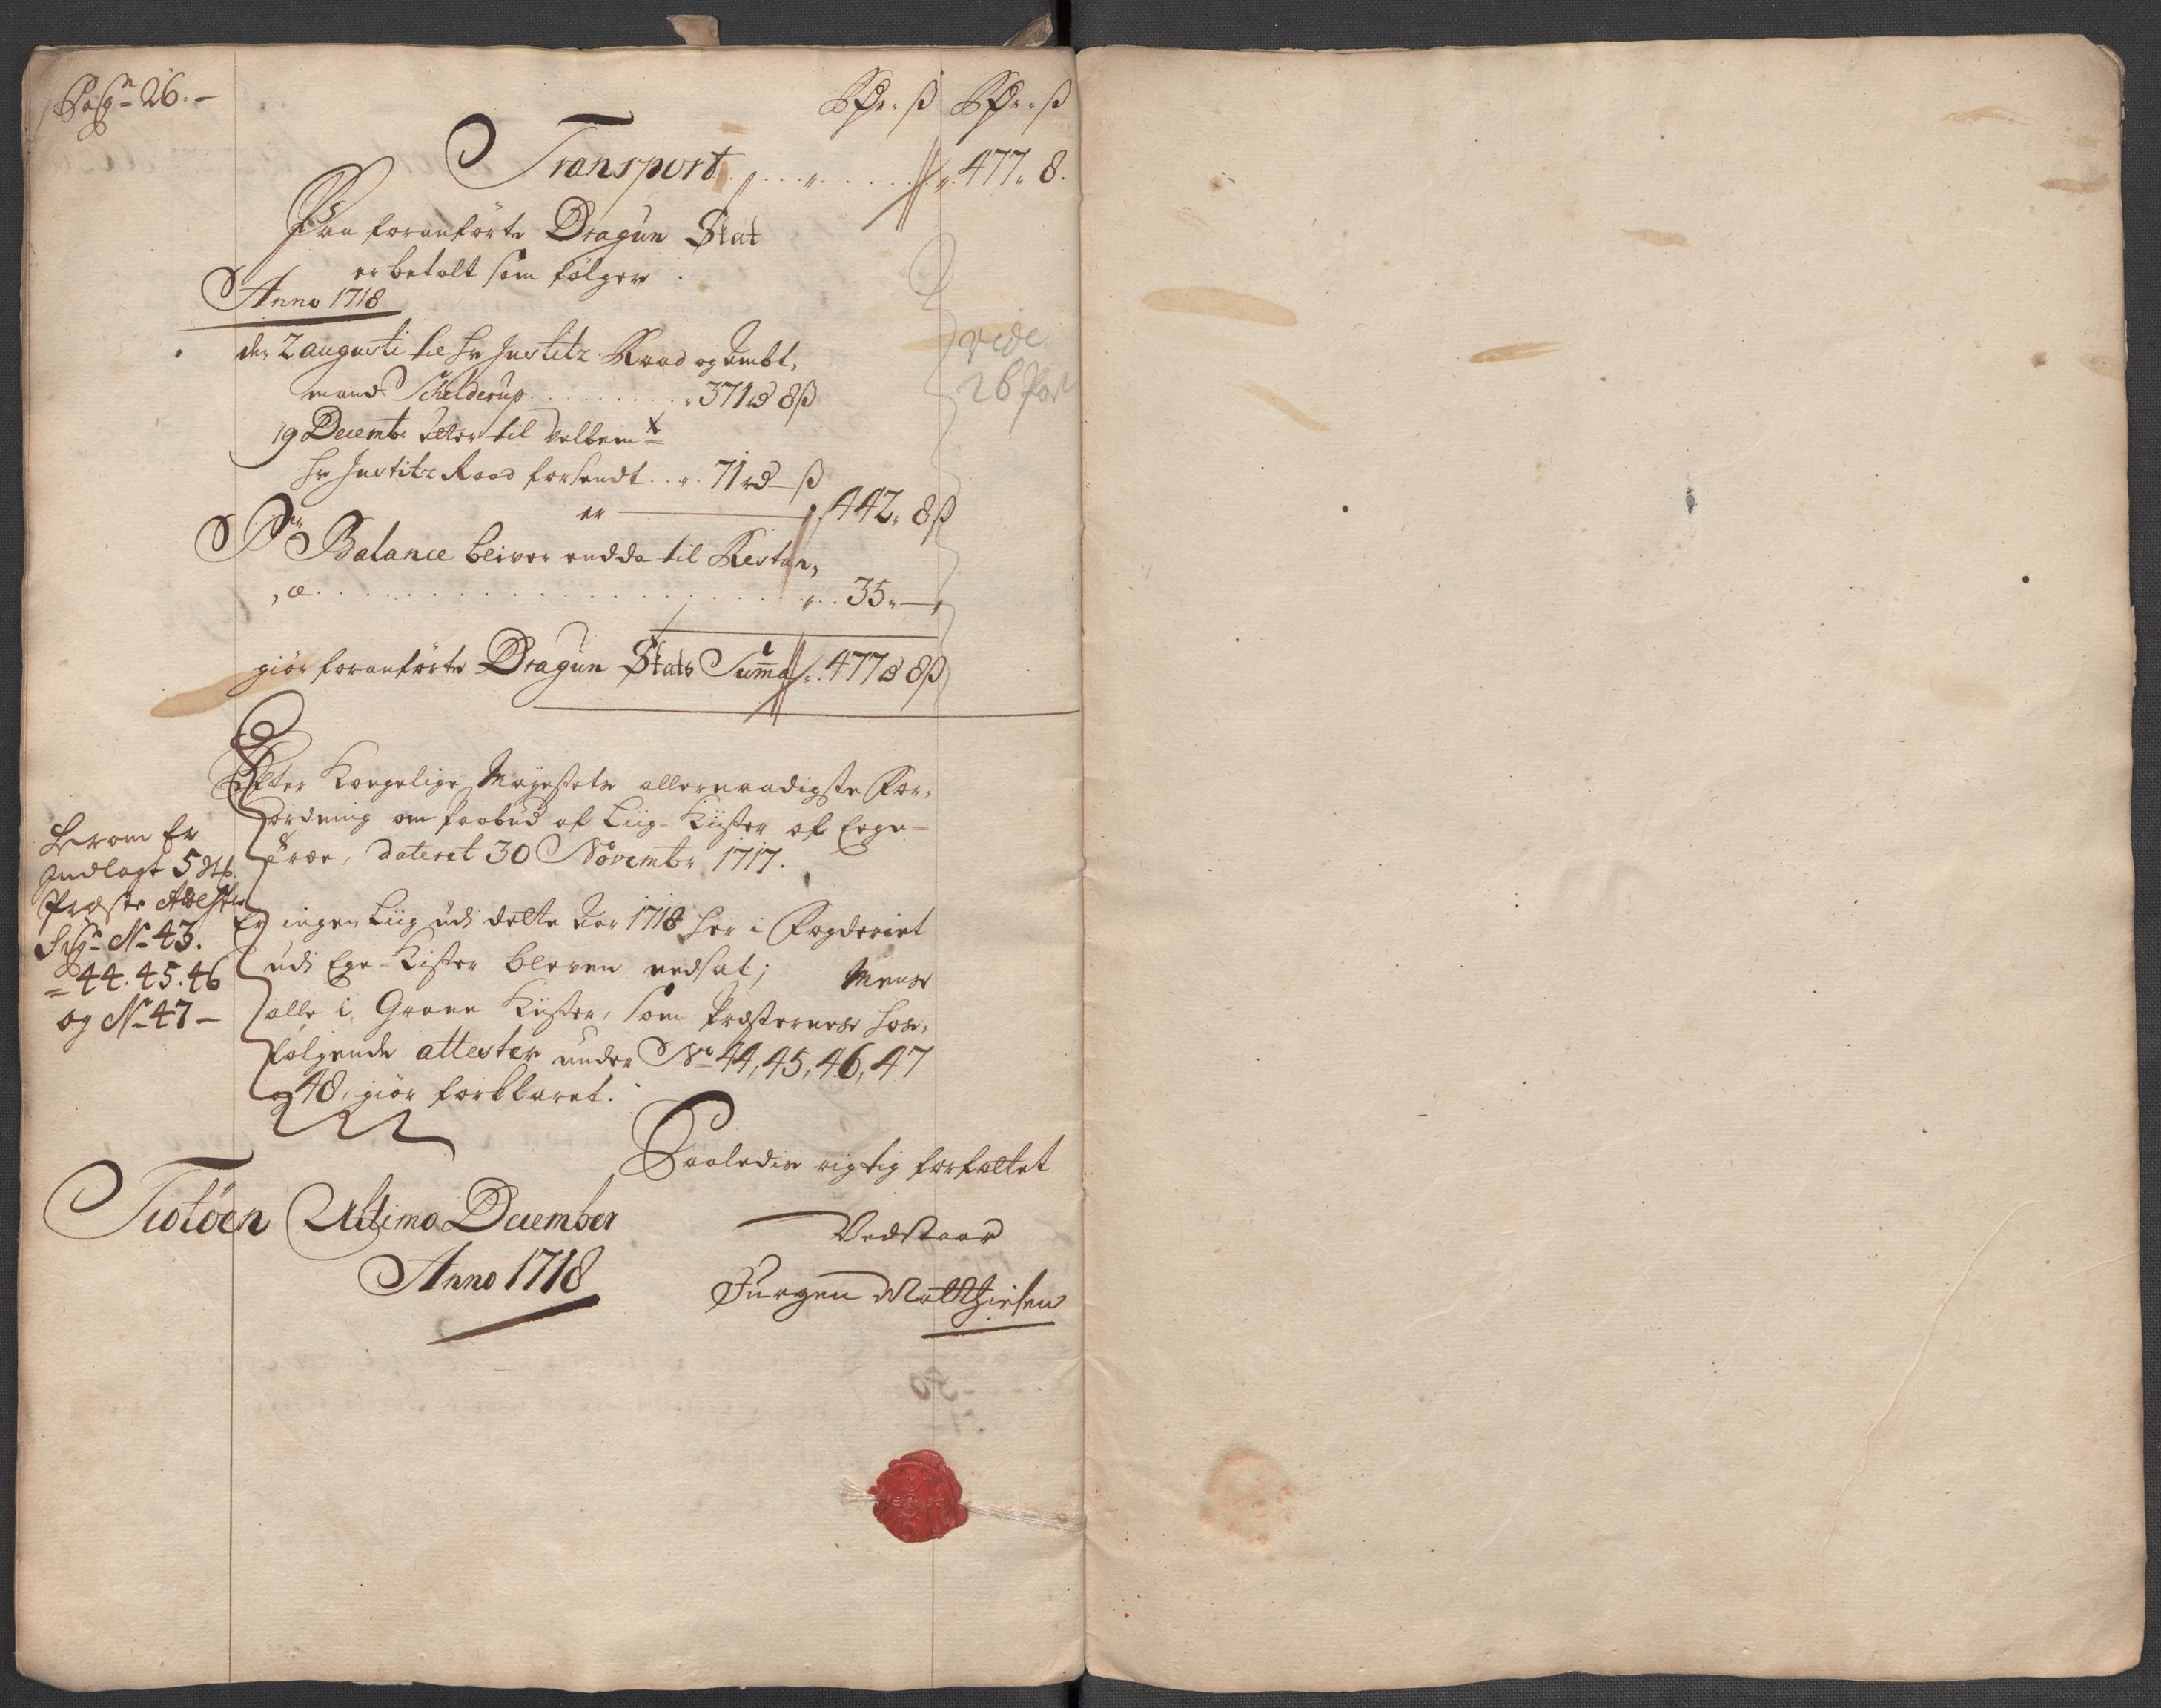 Pag: 26.
Rdr. ß Rdr. ß
Transport 477 " 8.
Paa foranførte Dragun Stat
er betalt som følger.
Anno 1718
den 2 augusti til hr Justitz Raad og Ambt,
mand Schelderup 371 rd 8 ß
19 Decembr atter til velbem
hr Justitz Raad forsendt 71 rd - ß
er 442 " 8 ß
Per Balance bliver endda til Restan,
,ce 35 "
giør foranførte Dragun Stats Summa 477 rd 8 ß
vide
26 Post
Efter Kongelige Mayestets allernaadigste For,
ordning om forbud af Liig-Kister af Ege-
træe, dateret 30 Novembr 1717.
Er ingen Liig udi dette Aar 1718 her i Fogderiet
udi Ege-Kister bleven nedsat; Mens
alle i Grane Kister, som Præsternes hos,
følgende attester under No 44, 45, 46, 47
og 48, giør forklaret.
Herom Er
Indlagt 5 st
Præste Attester
Sign No 43.
44. 45. 46
og No 47
Saaledis rigtig forfattet
Tiotøen Ultimo December
Anno 1718
Vedstaar
Jurgen Matthiesen